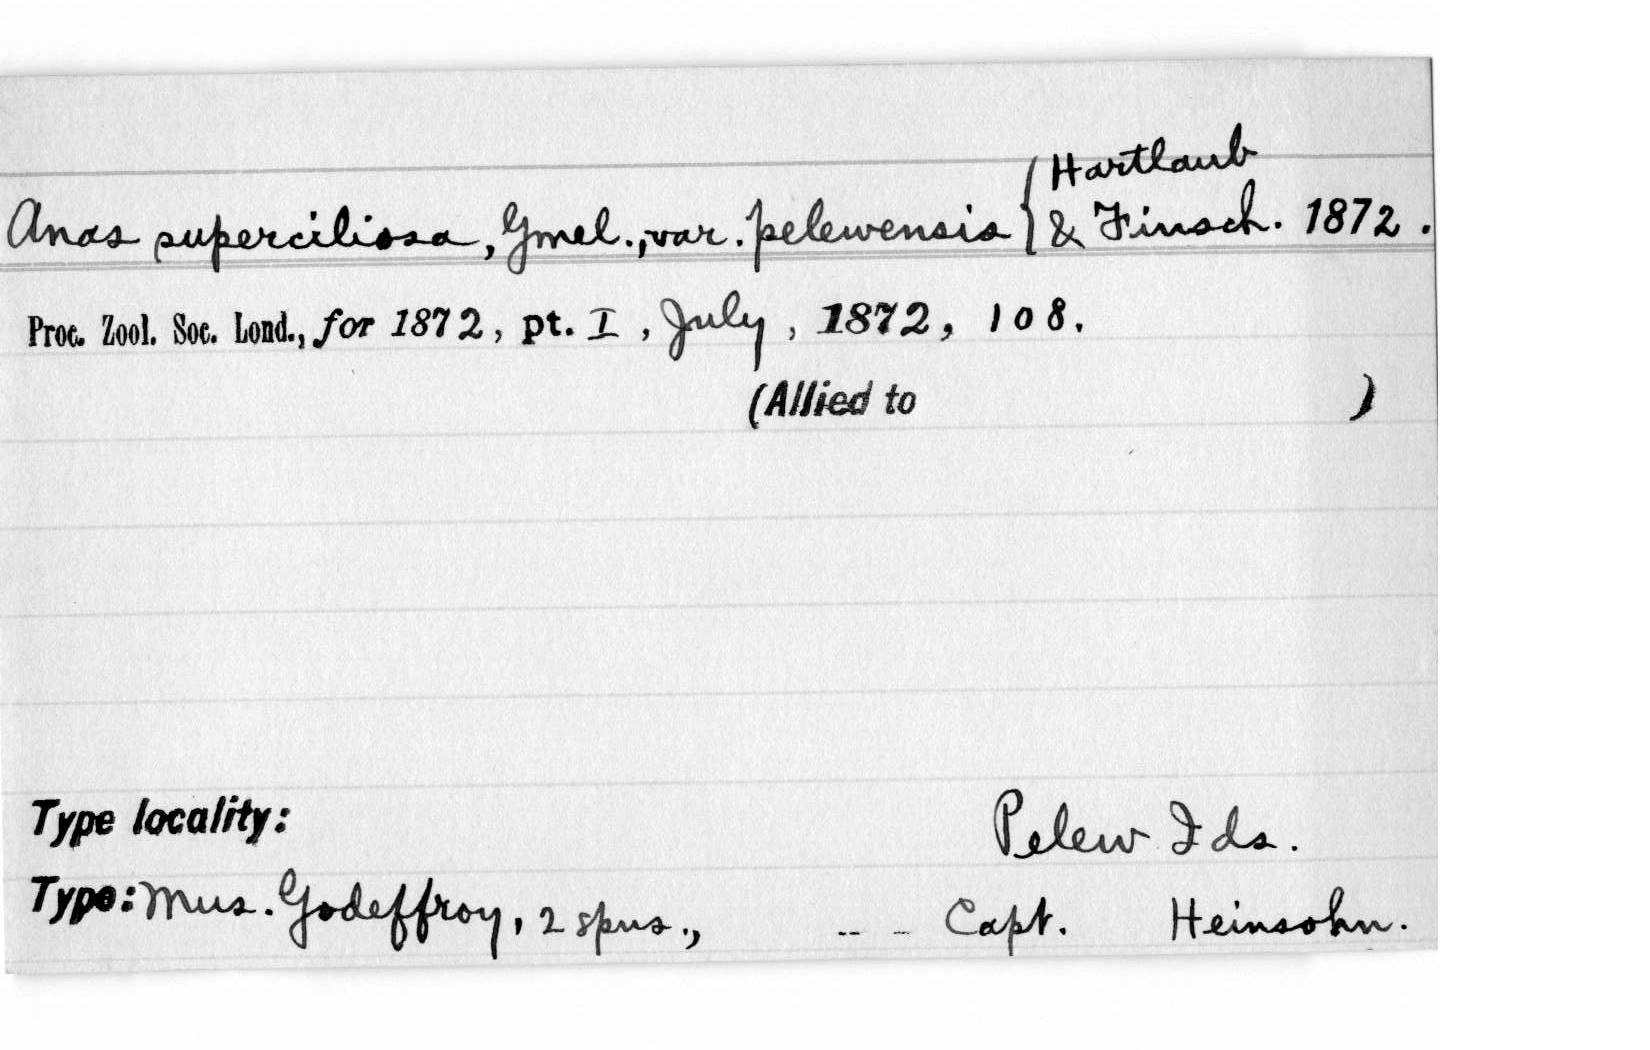 Anas superciliosa, Gmel., var. pelewensis { Hartlaub
& Finsch. 1872.
Proc. Zool. Soc. Lond., for 1872, pt. I, July, 1872, 108.
(Allied to )
Type locality: Pelew Ids.
Type: Mus. Godeffroy, 2 spns., -- - Capt. Heinsohn.